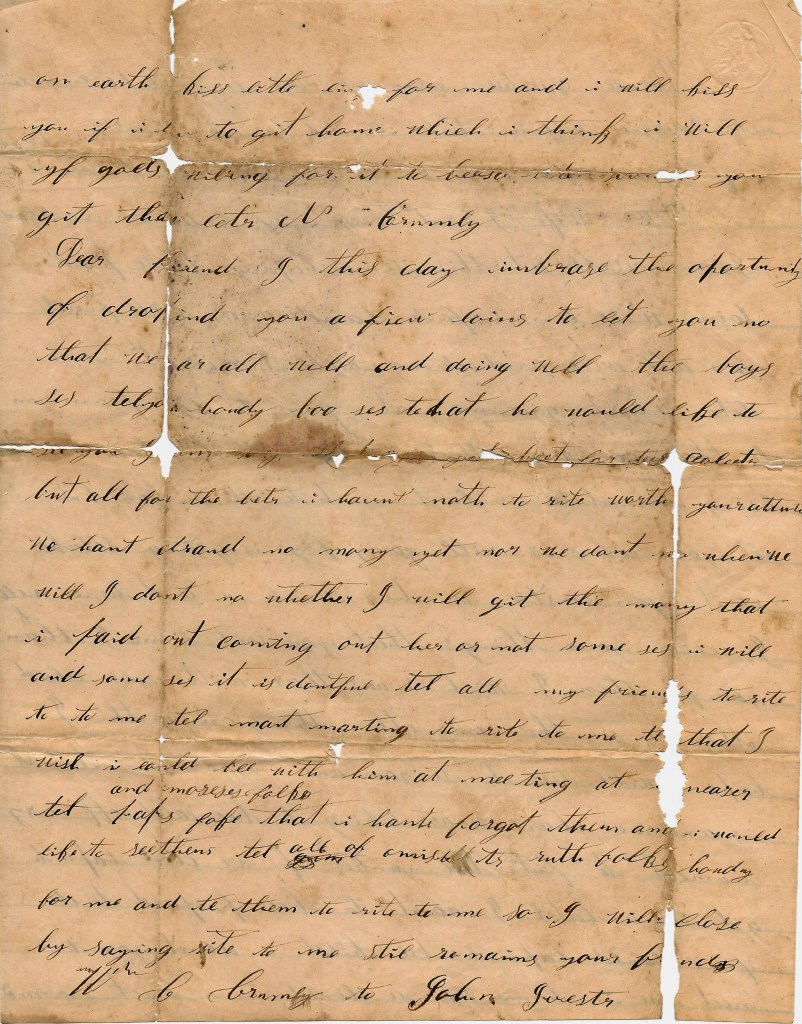 on earth kiss litle for me and i will kiss
you if i to git home which i think i will
yf gods wilring for it to be so you
git tha letr N Crumly
Dear friend I this day imbrase the oportunity
of dropind you a fiew loins to let you no
that we ar all well and doing well the boys
ses howdy boo ses that he would like to
for
but all for the bets i havent noth to rite worth your
we hant drand no mony yet nor we dont no when we
will I dont no whether I will git the mony that
i paid out coming out her or not some ses i will
and some ses it is doutful tel all my friends to rite
to to me tel mart marting to rite to me tel that I
wish i could bee with him at meeting at
and moseses folks
tel paps foks that i hant forgot them and i would
like to see them tel all of ruth folks howdy
for me and te them to rite to me so I will close
by saying rite to me stil remains your friends
C Crumly to John